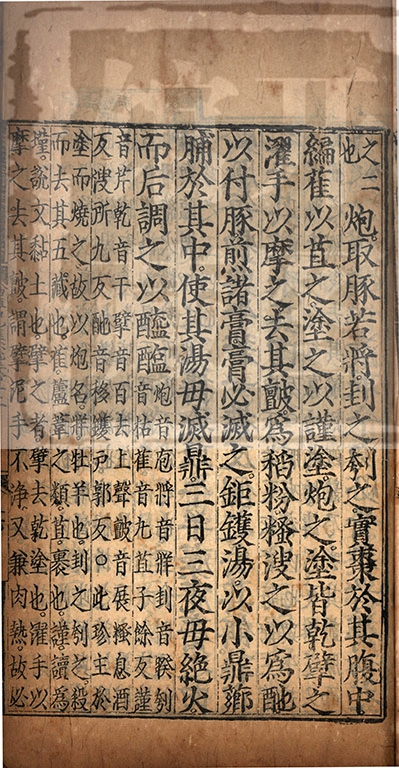 之二
也
炮。取豚若將。刲之刳之。實棗於其腹中。
編萑以苴之。塗之以謹塗。炮之。塗皆乾。擘之。
濯手以摩之。去其皽。為稻粉糔溲之以為酏
以付豚。煎諸膏。膏必滅之。鉅鑊湯。以小鼎薌
脯於其中。使其湯毋滅鼎。三日三夜毋絕火。
而后調之以醯醢
炮音庖將音牂刲音睽刳
音枯萑音九苴子餘反謹
音芹乾音干擘音百去上聲皽音展糔息酒
反溲所九反酏音移鑊戶郭反○此珍主於
塗而燒之。故以炮名。牂牡羊也。刲之刳之。殺
而去其五藏也。萑蘆葦之類。苴裹也。謹讀為
墐。說文黏土也。擘之者擘去乾塗也。濯手以
摩之去其皽。謂擘泥手不净。又兼肉熱。故必